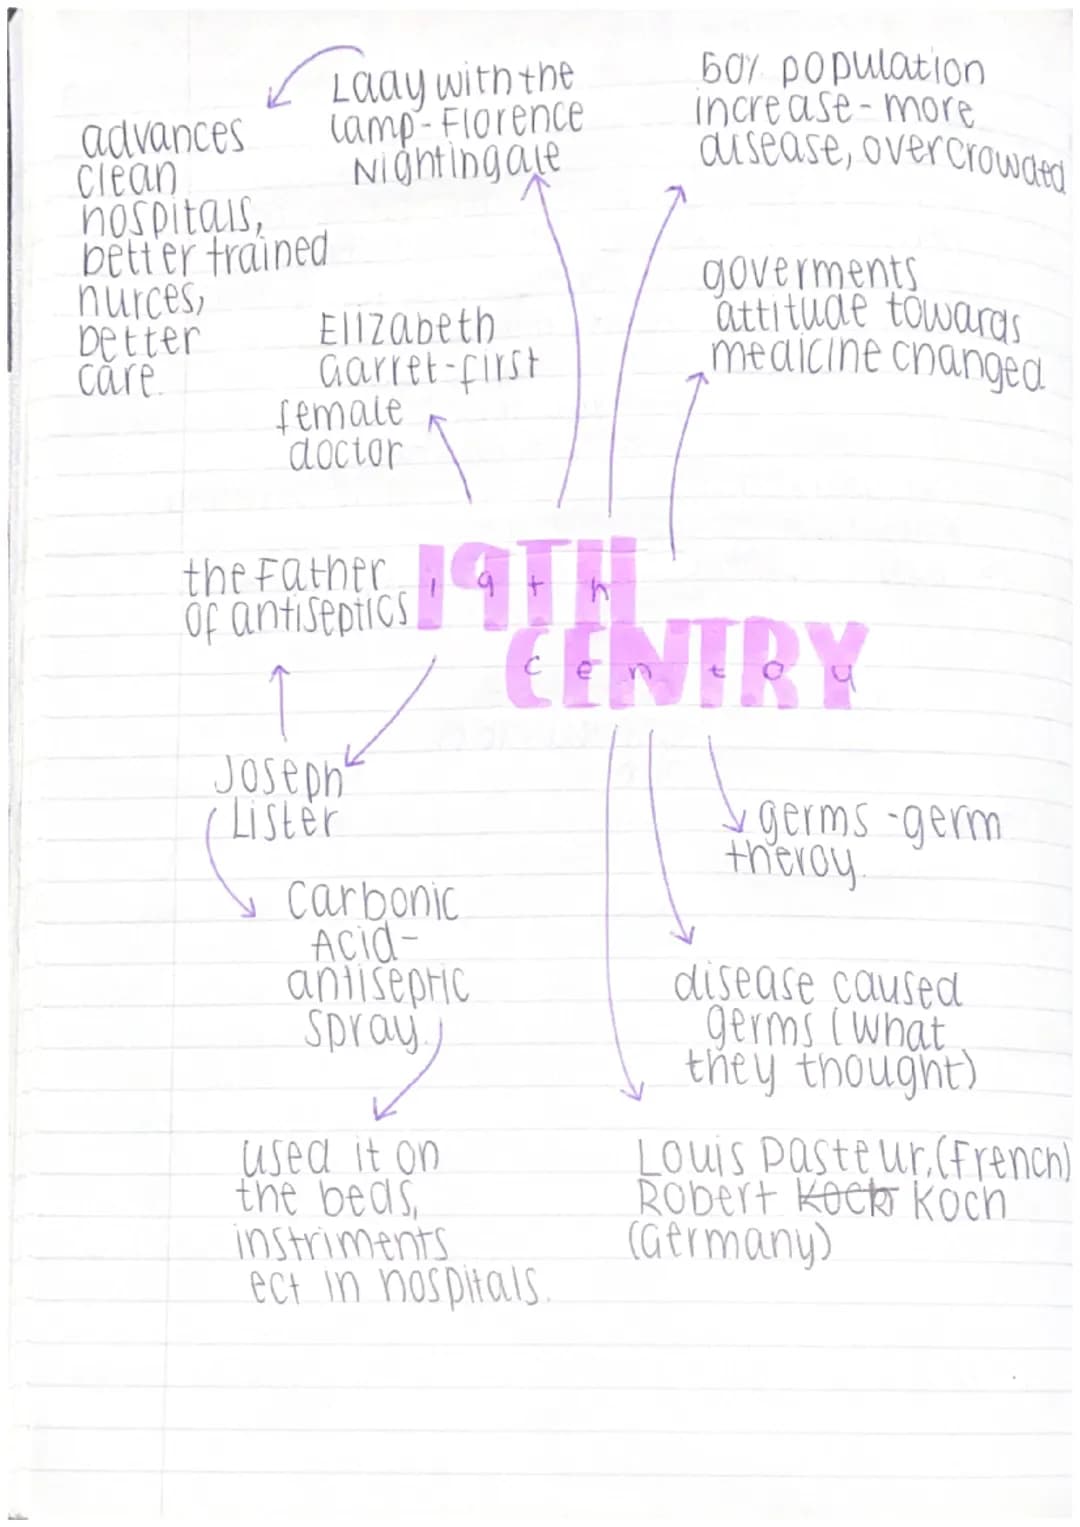 Lady with the
lamp - Florence
Nightingale
advances
clean
hospitals,
better trained
nurces,
better
care.
60% population
increase - more
disease, overcrowded
goverments
attitude towards
medicine changed
Elizabeth
Garret - first
female
doctor
the Father
of antiseptics
19TH
19th
CENTRY
Joseph
Lister
Carbonic
Acid -
antiseptic
spray.
used it on
the beds,
instriments
ect in hospitals.
germs - germ
theroy.
disease caused
germs (what
they thought)
Louis Pasteur, (French)
Robert Koch
(Germany)